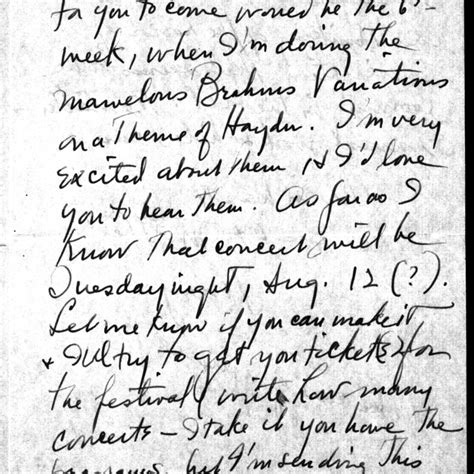 for you to come would be the 6th
week, when I'm doing the
marvelous Brahms Variations
on a Theme of Haydn. I'm very
excited about them & I'd love
you to hear them. As far as I
know that concert will be
Tuesday night, Aug. 12 (?).
Let me know if you can make it
& I'll try to get you tickets for
the festival (write how many
concerts – I take it you have the
programs, but I'm sending this